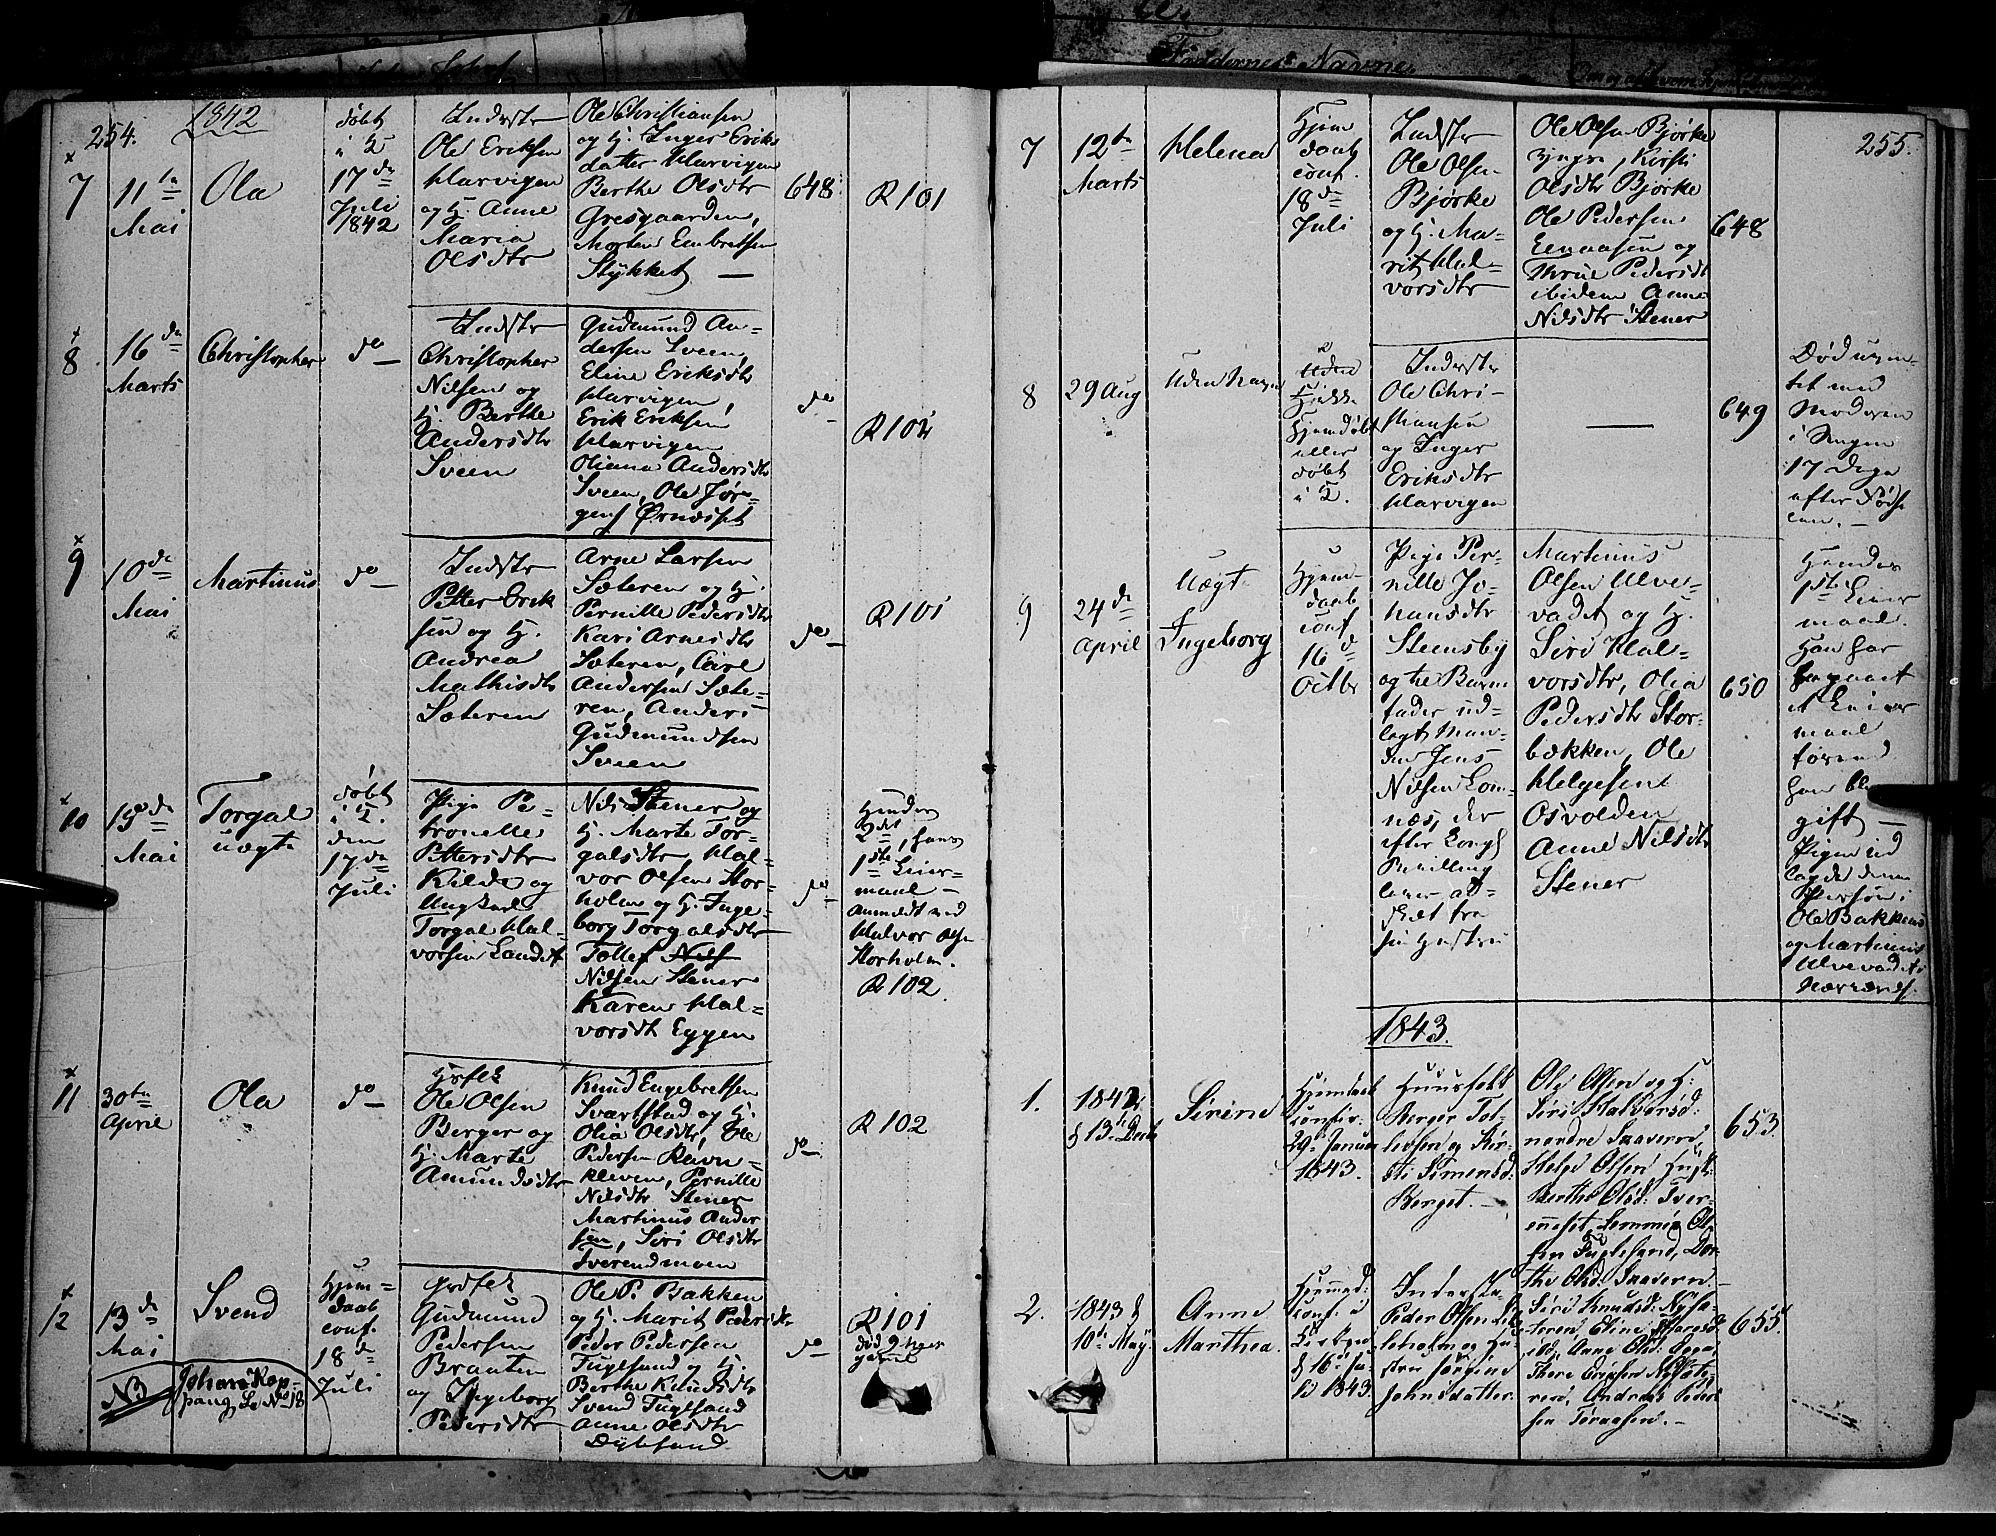 Føddernes Navne
254.
1842
7
11te
Mai
Ola
døbt
i K
17de
Juli
1842
Indstr
Ole Eriksen
Harvigen
og H. Anne
Maria
Olsdtr
Ole Christiansen
og H. Inger Eriks
datter Harvigen
Berthe Olsdtr
Gresgaarden,
Morten Embretsen
Stykket —
648
R 101
8
16de
Marts
Christopher
do
Indstr
Christopher
Nilsen og
H. Berthe
Andersdtr
Sveen
Gudmund An-
dersen Sveen,
Eline Eriksdtr
Harvigen,
Erik Eriksen
Harvigen
Oliana Andersdtr
Sveen, Ole Jør-
gens Ørnæsset
do
R 102
9
10de
Mai
Martinus
do
Indstr
Petter Erik
sen og H.
Andrea
Mathisdtr
Sæteren
Arne Larsen
Sæteren og H.
Pernille Pedersdtr
Kari Arnesdtr
Sæteren, Carl
Andersen Sæte-
ren, Anders
Gudmundsen
Sveen
do
R 101
10
15de
Mai
Torgal
uægte
døbt
i K.
den
17de
Juli
Pige Pe-
tronelle
Pettersdtr
Kilde og
Ungkarl
Torgal Hal-
vorsen Landet
Nils Stener og
H. Marte Tor-
galsdtr, Hal-
vor Olsen Stor-
holm og H. Inge-
borg Torgalsdtr
Tollef Nils
Nilsen Stener
Karen Hal-
vorsdtr Eggen
do
Hendes
2det, hans
1ste Leier-
maal —
Anmældt ved
Halvor Olsn
Storholm.
R 102
11
30te
April
Ola
do
Ole Olsen
Berger og
H. Marte
Amundsdtr
Knud Engebretsen
Svartstad og H.
Olia Olsdtr, Ole
Pedersen Ravn-
kleven, Pernille
Nilsdtr Stener
Martinus Ander
sen, Siri Olsdtr
Tverendmoen
do
R 102
12
13de
Mai
Svend
Hjem-
daab
conf.
18de
Juli
Gudmund
Pedersen
Braaten
og Ingeborg
Pedersdtr
Ole P. Bakken
og H. Marit Pedersdtr
Peder Pedersen
Fuglsand og H.
Berthe Knudsdtr
Svend Fuglsand
Anne Olsdtr
do
R 101
død 2 Aar
gamel
NB
Johan Kop-
pang, Se No 18
255.
7
12te
Marts
Helena
Hjem
daab
conf.
18de
Juli
Indstr
Ole Olsen
Bjørke
og H. Ma-
rit Hal-
vorsdtr
Ole Olsen Bjørke
yngre, Kirsti
Olsdtr Bjørke
Ole Pedersen
Eenaasen og
Thrue Pedersdtr
ibidem Anne
Nilsdtr Stener
648
8
29 Aug
Uden Navn
Uden
Hjemdøbt
eller
døbt
i K.
Indstr
Ole Chri-
stiansen
og Inger
Eriksdtr
Harvigen
649
Død uven-
tet med
Moderen
i Sengen
17 Dage
efter Føds
len. —
9
24de
April
Uægt
Ingeborg
Hjem-
daab
conf.
16de
Octbr
Pige Per-
nille Jo-
hansdtr
Stensby
og til Barne
fader ud-
lagt Man-
den Jens
Nilsen Lom-
næs, der
efter Kongl
Bevilling
lever ad-
skilt fra
sin Hustru
Martinus
Olsen Ulve-
vadet og H.
Siri Hal-
vorsdtr, Olia
Pedersdtr Stor-
bækken, Ole
Helgesen
Osvolden
Anne Nilsdtr
Stener
650
Hendes
1ste Leier
maal.
Han har
begaaet
et Leier
maal
førend
han blev
gift —
Pigen ud
lagde denne
Person i
Ole Bakkens
og Martinus
Ulvevadets
Nærværelse.
1843.
1.
1842
d 13de Decb
Sirene
Hjemdøbt
confir.
29de Januar
1843.
Huusfolk
Berger Tol-
lefsen og Kir-
sti Simensd:
Berget. —
Ole Olsen og H:
Siri Halvorsd:
nordre Snaveren,
Helge Olsen
Berthe Olsd: Tver-
enneset, Semming Ol-
sen Fuglesand, Dor-
the Olsd: Snaveren. —
653
2.
1843 d
10de May
Anne
Marthea.
Hjemmed:
conf. i
Kirken
d 16de Ju-
li 1843.
Inderste
Peder Olsen
og Hu-
stru Jørgine
Johnsdatter.
Siri Knudsd: Nysæ-
teren, Eline
Anne Olsd:
Thore Eriksen Nysæte-
ren, Andreas Peder-
sen Tøraasen. —
655.